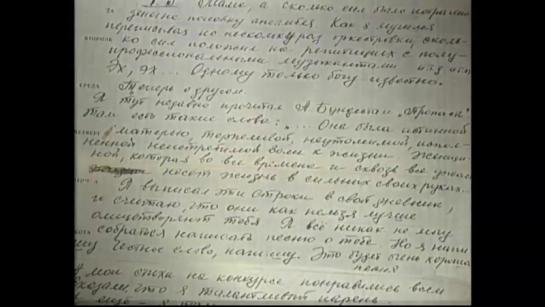 Мама, а сколько сил было потрачено
Как я мучился
переписывал по нескольку раз оркестровки, сколь-
ВТОРНИК ко сил положил на репетициях с полу-
профессиональными музыкантами и т.д. и т.п.
Эх, эх ... Одному только богу известно.
СРЕДА Теперь о другом.
Я тут недавно прочитал А. Бундестам „Пропасть“
Там есть такие слова: „... Она была истинной
матерью, терпеливой, неутомимой, испол-
ненной неистребимой воли к жизни женщи-
ной, которая во все времена и сквозь все
носит жизнь в сильных своих руках.
Я выписал эти строки в свой дневник,
и считаю, что они как нельзя лучше
олицетворяют тебя Я всё никак не могу
собраться написать песню о тебе. Но я напи
шу честное слово, напишу. Это будет очень хорошая
песня
мои стихи на конкурсе понравились всем
сказали, что я талантливый парень